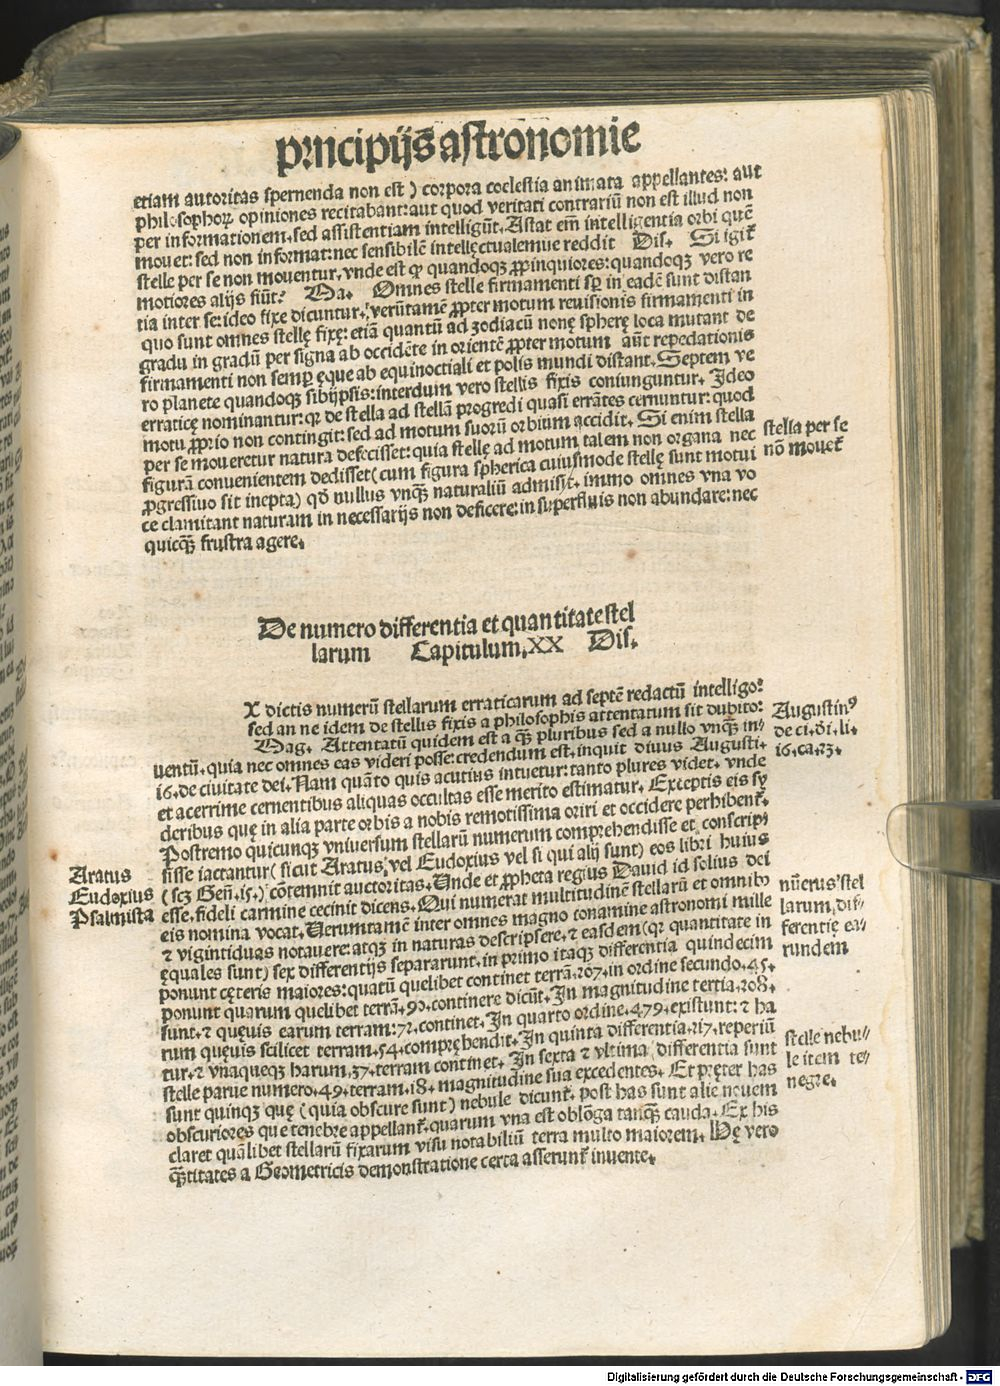 principijs astronomie
etiam autoritas spernenda non est) corpora coelestia animata appellantes: aut
philosophoꝝ opiniones recitabant: aut quod veritati contrariū non est illud non
per informationem, sed assistentiam intelligūt. Astat em̄ intelligentia orbi quē
mouet: sed non informat: nec sensibilē intellectualemue reddit Dis. Si igit̄
stelle per se non mouentur, vnde est ꝙ quandoqꝫ ꝓpinquiores: quandoqꝫ vero re
motiores alijs fiūt? Ma. Omnes stelle firmamenti sp̄ in eadē sunt distan
tia inter se: ideo fixe dicuntur, verūtamē ꝓpter motum reuisionis firmamenti in
quo sunt omnes stellę fixę: etiā quantū ad zodiacū nonę spherę loca mutant de
gradu in gradū per signa ab occidēte in orientē ꝓpter motum aūt trepedationis
firmamenti non semꝑ ęque ab equinoctiali et polis mundi distant. Septem ve
ro planete quandoqꝫ sibijpsis: interdum vero stellis fixis coniunguntur. Ideo
erraticę nominantur: qꝛ de stella ad stellā progredi quasi errātes cernuntur: quod
motu ꝓprio non contingit: sed ad motum suorū orbium accidit. Si enim stella
per se moueretur natura defecisset: quia stellę ad motum talem non organa nec
figurā conuenientem dedisset (cum figura spherica cuiusmode stellę sunt motui
ꝓgressiuo sit inepta) qd̄ nullus vnqꝫ naturaliū admisit. immo omnes vna vo
ce clamitant naturam in necessarijs non deficere: in superfluis non abundare: nec
quicqꝫ frustra agere.
stella per se
nō mouet̄
De numero differentia et quantitate stel
larum Capitulum. XX Dis.
X dictis numerū stellarum erraticarum ad septē redactū intelligo:
sed an ne idem de stellis fixis a philosophis attentatum sit dubito:
Mag. Attentatū quidem est a qꝫ pluribus sed a nullo vnqꝫ in-
uentū. quia nec omnes eas videri posse: credendum est, inquit diuus Augusti.
16. de ciuitate dei. Nam quāto quis acutius intuetur: tanto plures videt. vnde
et acerrime cernentibus aliquas occultas esse merito estimatur. Exceptis eis sy
deribus quę in alia parte orbis a nobis remotissima oriri et occidere perhibent̄.
Postremo quicunqꝫ vniuersum stellarū numerum comprehendisse et conscrip-
sisse iactantur (sicut Aratus vel Eudoxius vel si qui alij sunt) eos libri huius
(scꝫ Gen̄. 15.) cōtemnit auctoritas. Unde et ꝓpheta regius Dauid id solius dei
esse, fideli carmine cecinit dicens. Qui numerat multitudinē stellarū et omnibꝰ
eis nomina vocat. Uerumtamē inter omnes magno conamine astronomi mille
⁊ vigintiduas notauere: atqꝫ in naturas descripsere, ⁊ easdem (qꝛ quantitate in
ęquales sunt) sex differentijs separarunt. in primo itaqꝫ differentia quindecim
ponunt cęteris maiores: quatū quelibet continet terrā. 107. in ordine secundo. 45.
ponunt quarum quelibet terrā. 90. continere dicūt. In magnitudine tertia. 208.
sunt. ⁊ quęuis earum terram: 72. continet. In quarto ordine. 479. existunt: ⁊ ha
rum queuis scilicet terram. 54. comprehendit. In quinta differentia. 217. reperiū
tur. ⁊ vnaqueqꝫ harum. 37. terram continet. In sexta ⁊ vltima differentia sunt
stelle parue numero. 49. terram. 18. magnitudine sua excedentes. Et pręter has
sunt quinqꝫ quę (quia obscure sunt) nebule dicunt̄. post has sunt alie nouem
obscuriores que tenebre appellant̄. quarum vna est oblōga tanqꝫ cauda. Ex his
claret quālibet stellarū fixarum visu notabiliū terra multo maiorem. Hę vero
qꝫtitates a Geometricis demonstratione certa asserunt̄ inuente.
Augustinꝰ
de ci. di. li.
16. ca. 23.
Aratus
Eudoxius
Psalmista
nūerus stel
larum, dif-
ferentię ea-
rundem
stelle nebu-
le item te-
negre.
Digitalisierung gefördert durch die Deutsche Forschungsgemeinschaft - DFG